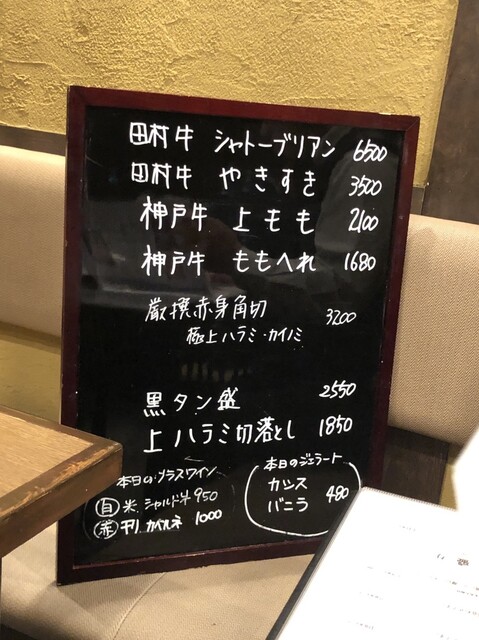 田村牛 シャトーブリアン 6500
田村牛 やきすき 3500
神戸牛 上もも 2100
神戸牛 ももへれ 1680
厳撰赤身角切 3200
極上ハラミ・カイノミ
黒タン盛 2550
上ハラミ切落とし 1850
本日のグラスワイン
白 米 シャルドネ 950
赤 チリ カベルネ 1000
本日のジェラート
カシス
バニラ 480